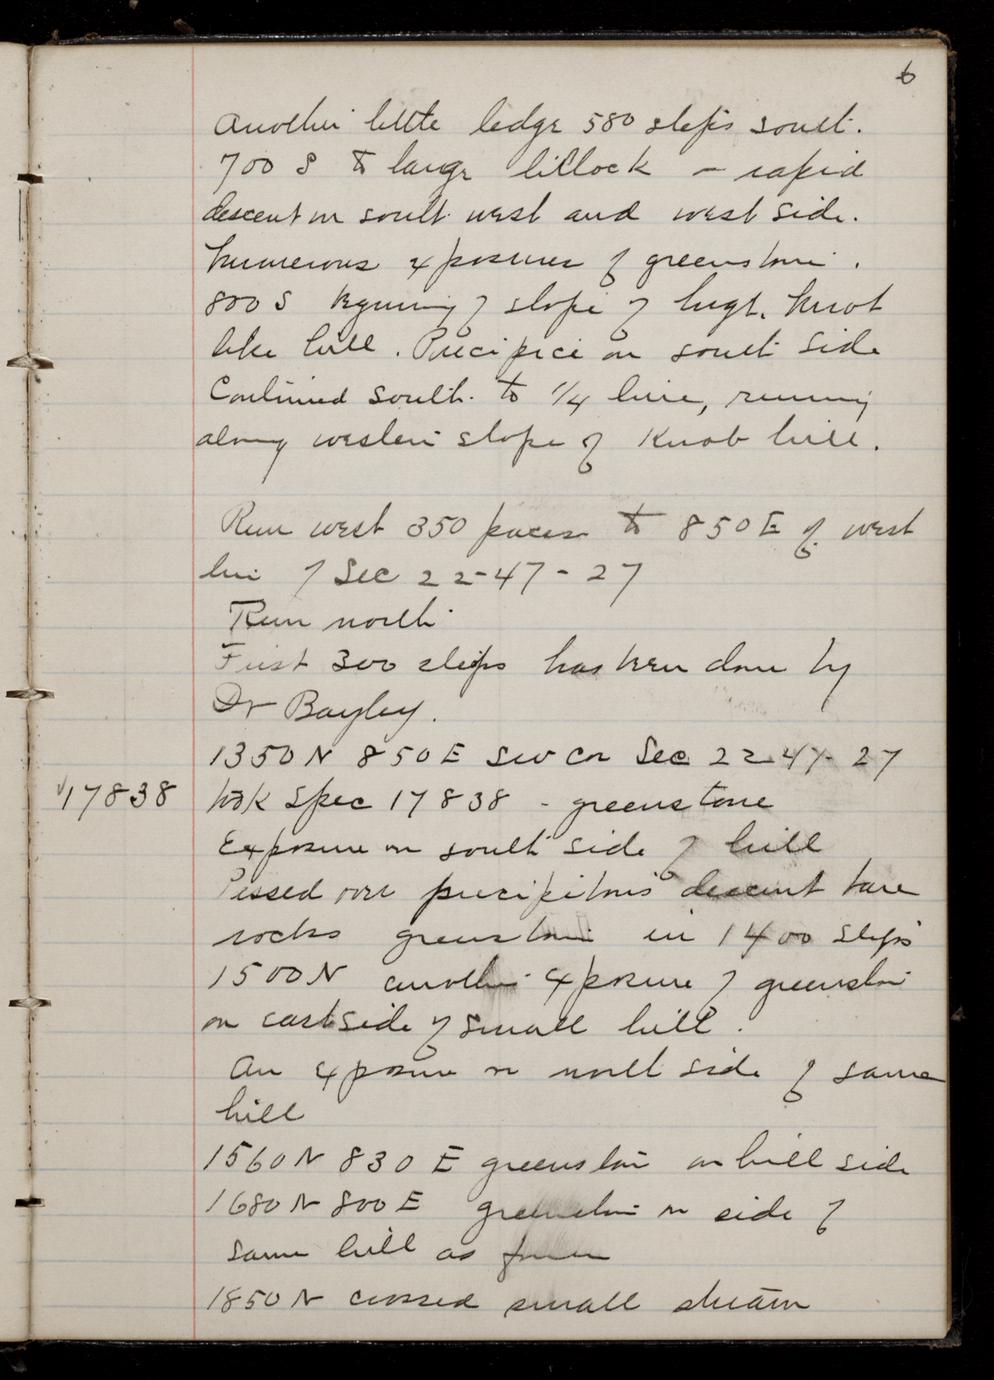 6
Another little ledge 580 steps south.
700 S to large hillock - rapid
descent on south west and west side.
Numerous exposures of greenstone.
800 S beginning of slope of high, knot
like hill. Precipice on south side
Continued south to 1/4 line, running
along western slope of Knob hill.
Run west 350 paces to 850 E of west
line of Sec 22-47-27
Run north
First 300 steps has been done by
Dr Bayley.
1350 N 850 E SW Cor Sec 22-47-27
17838 took Spec 17838 - greenstone
Exposure on south side of hill
Passed over precipitous descent bare
rocks greenstone in 1400 steps
1500 N another exposure of greenstone
on east side of small hill.
An exposure on north side of same
hill
1560 N 830 E greenstone on hill side
1680 N 800 E greenstone on side of
same hill as former
1850 N crossed small stream